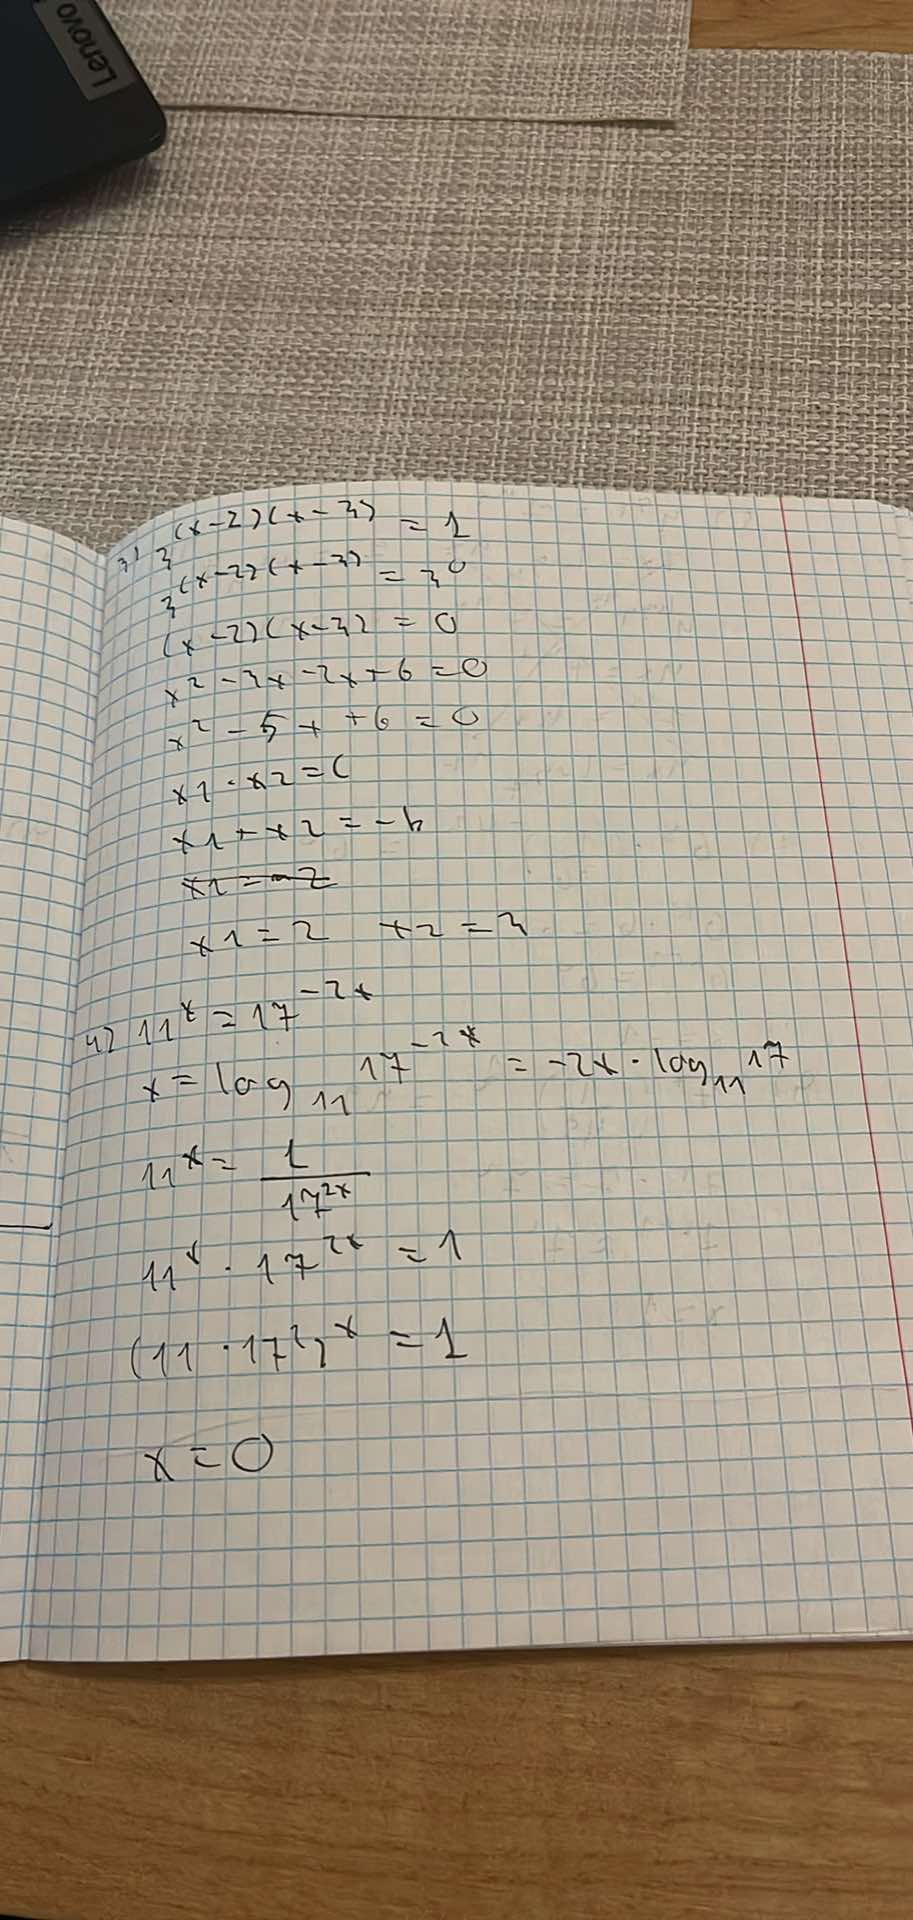 Lenovo
3) 3^(x-2)(x-3) = 1
3^(x-2)(x-3) = 3^0
(x-2)(x-3) = 0
x² - 3x - 2x + 6 = 0
x² - 5x + 6 = 0
x1 · x2 = 6
x1 + x2 = -b
x1 = -2
x1 = 2 x2 = 3
4) 11^x = 17^-2x
x = log₁₁ 17^-2x = -2x · log₁₁ 17
11^x = 1/17^2x
11^x · 17^2x = 1
(11 · 17²)^x = 1
x = 0